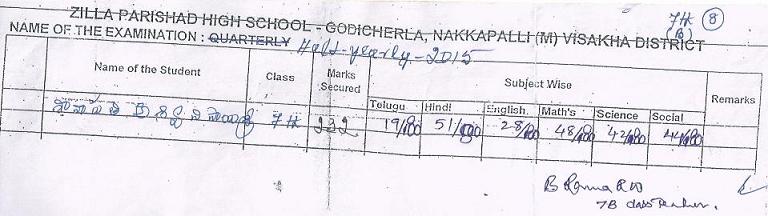 7H 8
(B)
ZILLA PARISHAD HIGH SCHOOL - GODICHERLA, NAKKAPALLI (M) VISAKHA DISTRICT
NAME OF THE EXAMINATION : QUARTERLY Half-yearly-2015
Name of the Student Class Marks Secured Subject Wise Remarks
Telugu Hindi English. Math's Science Social
7H 232 19/100 51/100 28/100 48/100 42/100 44/100
B Rama Rao
7B class Teacher.